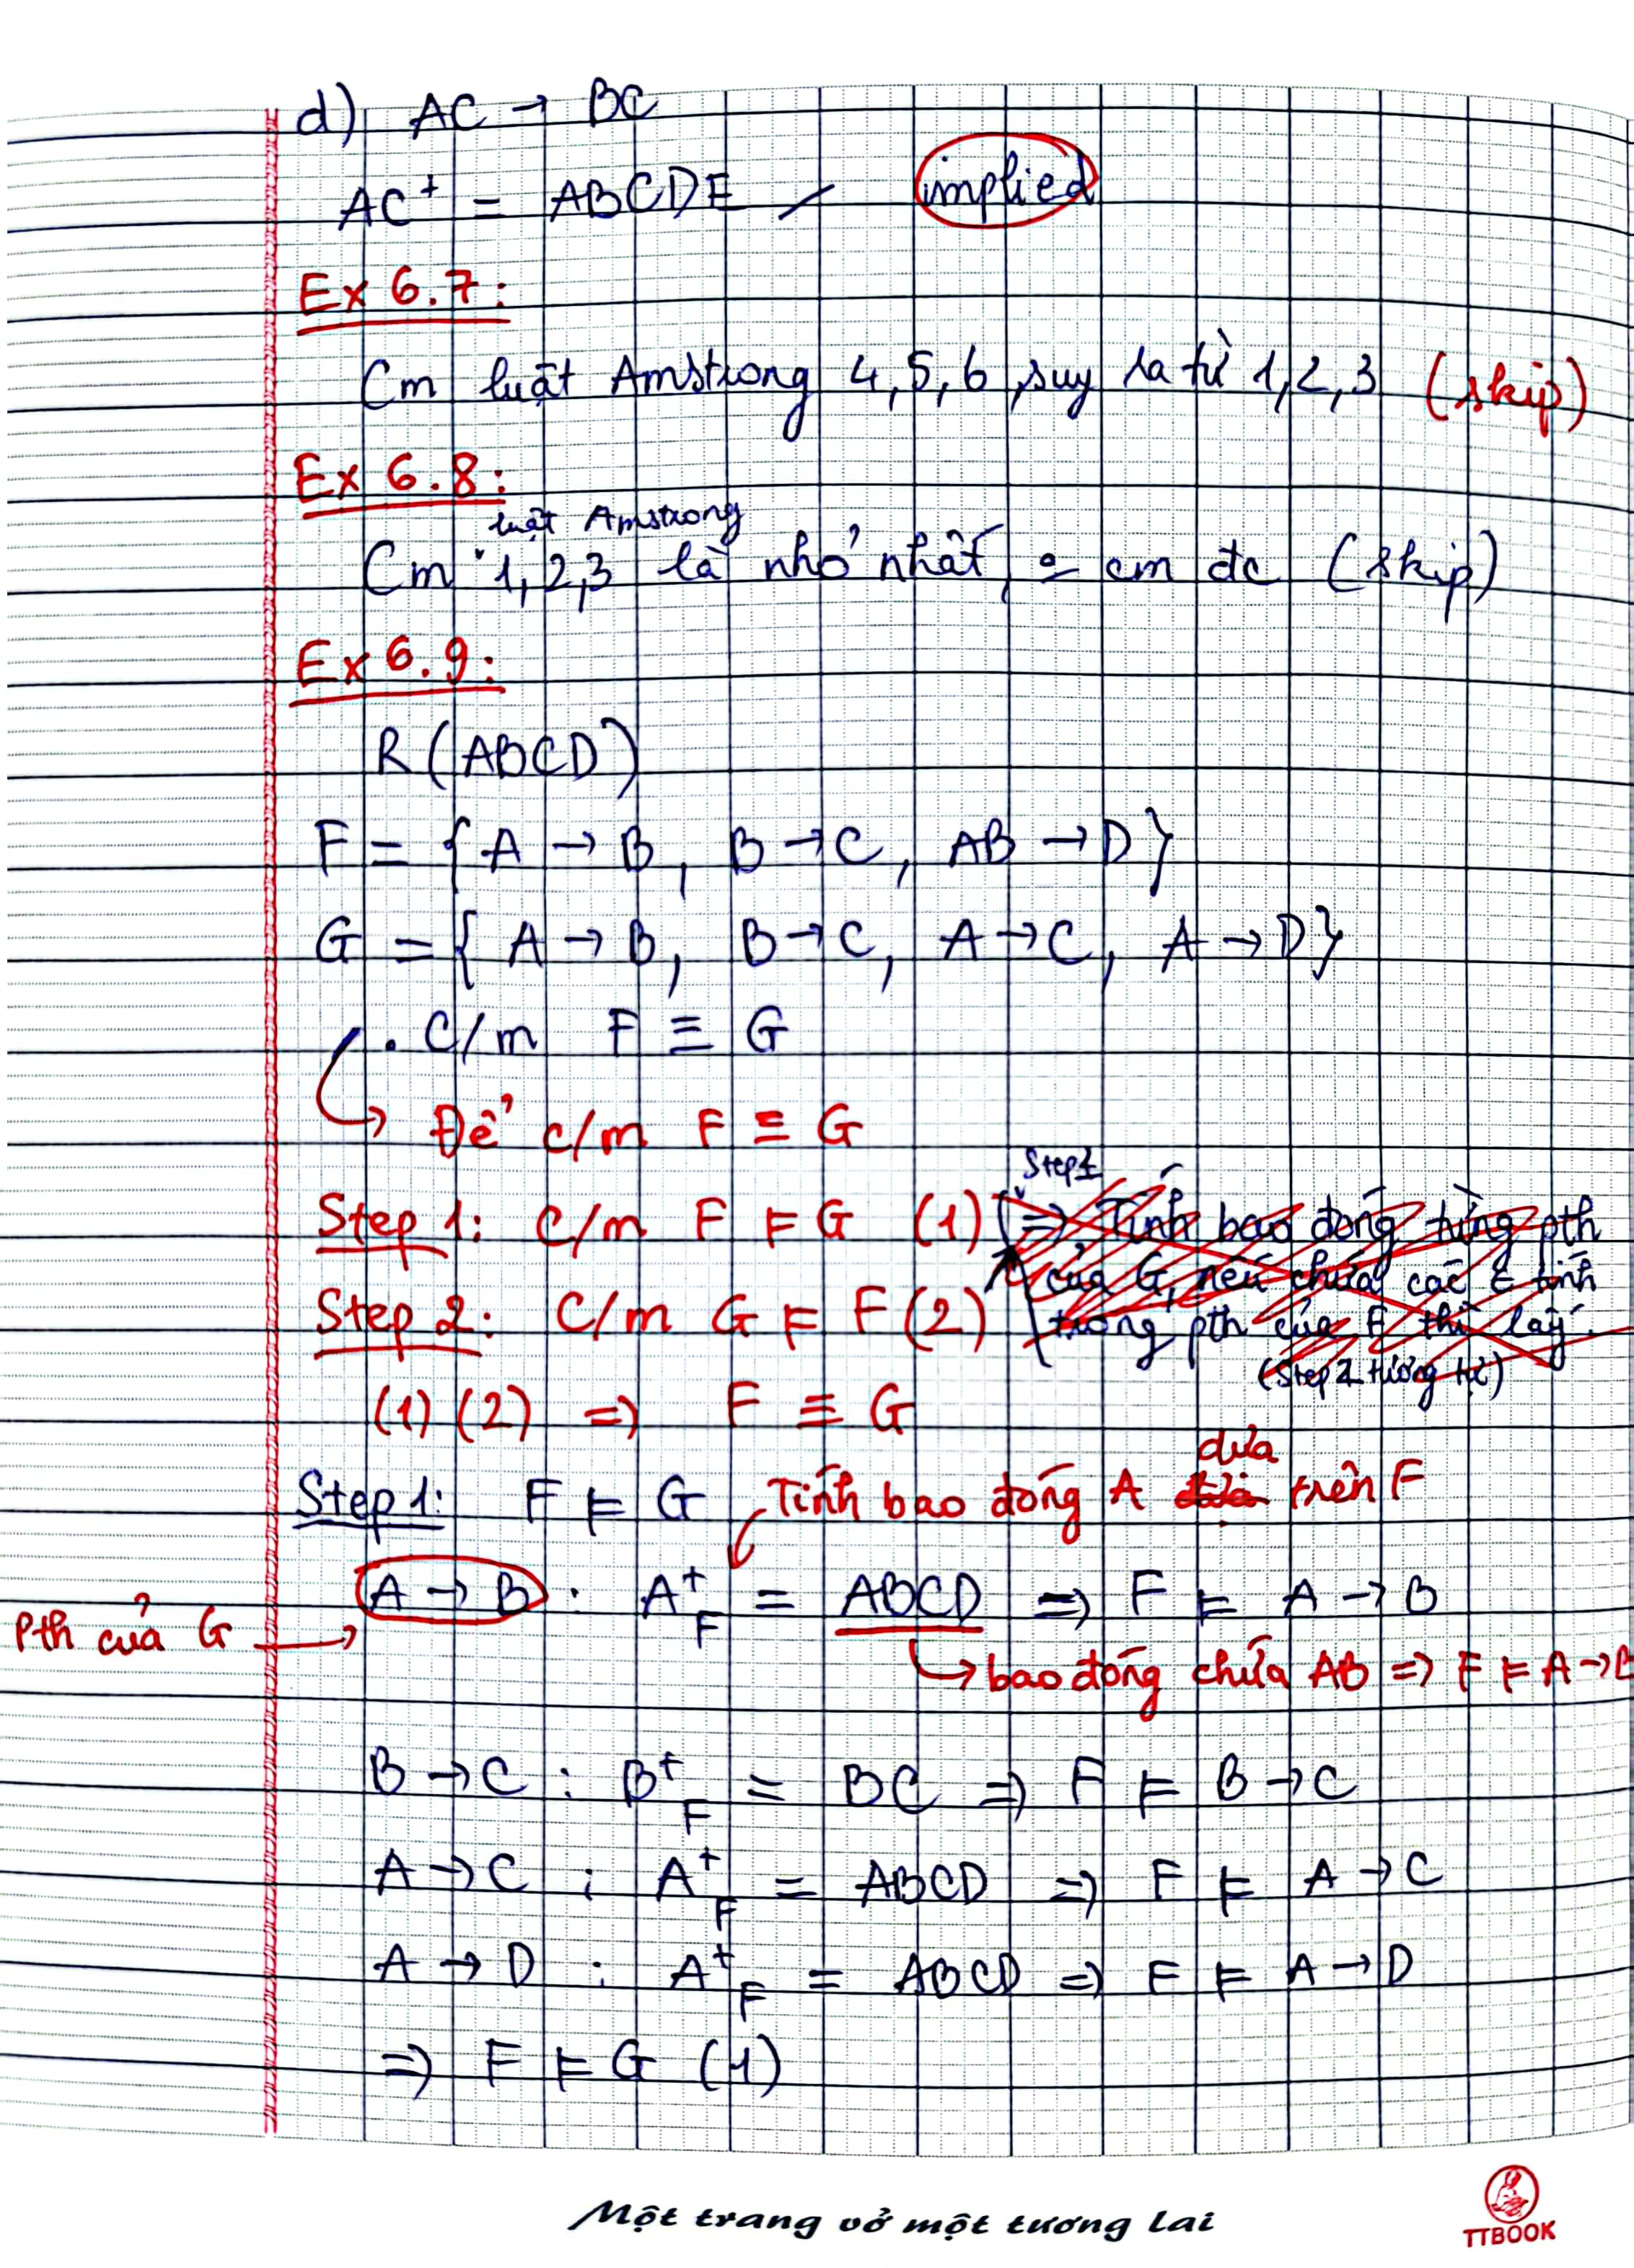 d) AC → BC
AC⁺ = ABCDE / implied
Ex 6.7:
Cm luật Amstrong 4, 5, 6 suy ra từ 1, 2, 3 (skip)
Ex 6.8:
luật Amstrong
Cm 1, 2, 3 là nhỏ nhất, cm đc (skip)
Ex 6.9:
R (ABCD)
F = { A → B, B → C, AB → D}
G = { A → B, B → C, A → C, A → D}
. C/m F ≡ G
↳ Để c/m F ≡ G
Step 1
Step 1: C/m F ⊨ G (1) (⇒ Tính bao đóng từng pth
của G, nếu chứa các t tính
Step 2: C/m G ⊨ F (2)
trong pth của F thì lấy.
(Step 2 tương tự)
(1) (2) ⇒ F ≡ G
dựa
Step 1: F ⊨ G Tính bao đóng A trên F
A → B : A⁺F = ABCD ⇒ F ⊨ A → B
Pth của G →
↳ bao đóng chứa AB ⇒ F ⊨ A → B
B → C : B⁺F = BC ⇒ F ⊨ B → C
A → C : A⁺F = ABCD ⇒ F ⊨ A → C
A → D : A⁺F = ABCD ⇒ F ⊨ A → D
⇒ F ⊨ G (1)
Một trang vở một tương lai
TTBOOK